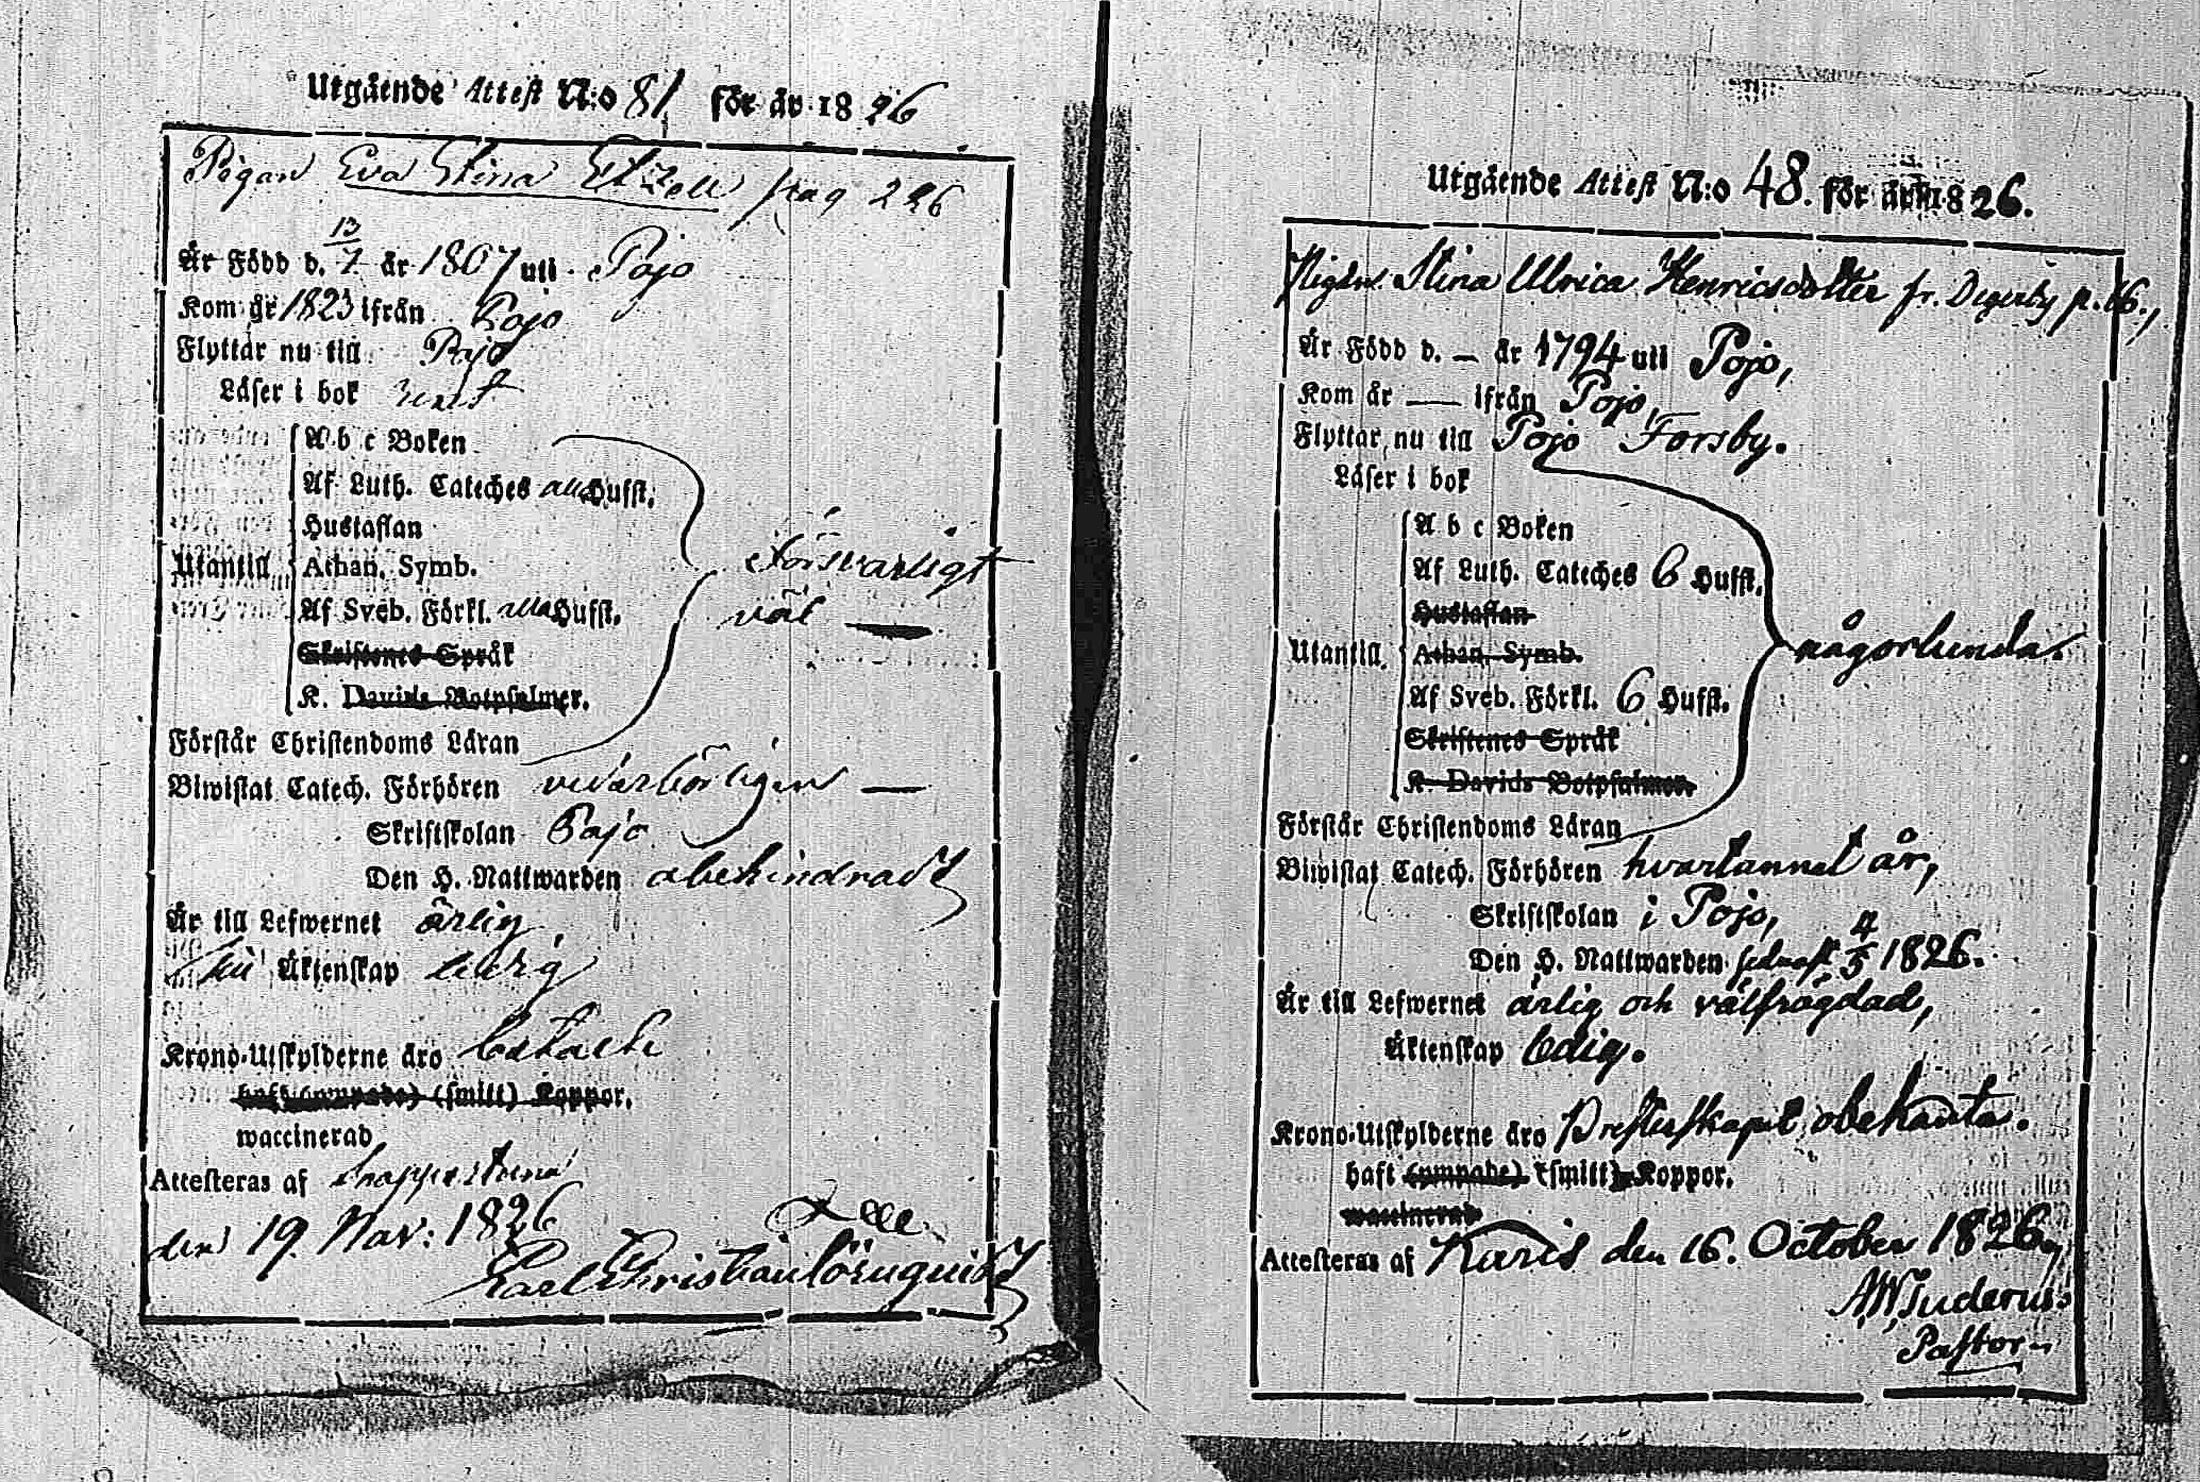 Utgående Attest N:o 81 för år 1826
Pigan Eva Stina pag 226
Är Född d. 13/7 år 1807 uti Pojo
Kom år 1823 ifrån Pojo
Flyttar nu till Pojo
Läser i bok rent
A b c Boken
Af Luth. Cateches alla Hufst.
Hustaflan
Utantill Athan. Symb. Försvarligt
Af Sveb. Förkl. alla Hufst. väl
Skriftenes Språk
K. Davids Botpsalmer.
Förstår Christendoms Läran
Biwistat Catech. Förhören vederbörligen —
Skriftskolan Pojo
Den H. Nattwarden obehindradt
Är till Lefwernet ärlig
till Äktenskap ledig
Krono-Utskylderne äro betalte
haft (ympade) (smitt) Koppor.
waccinerad
Attesteras af Snappertuna
den 19 Nov: 1826
Carl Christian
Utgående Attest N:o 48. för år 1826.
Pigan Stina Ulrica Henricsdotter fr. Degerby p.
Är Född d. — år 1794 uti Pojo,
Kom år — ifrån Pojo,
Flyttar nu till Pojo Forsby.
Läser i bok
A b c Boken
Af Luth. Cateches 6 Hufst.
Hustaflan
Utantill. Athan. Symb. någorlunda.
Af Sveb. Förkl. 6 Hufst.
Skriftenes Språk
K. Davids Botpsalmer.
Förstår Christendoms Läran
Biwistat Catech. Förhören hvartannat år,
Skriftskolan i Pojo,
Den H. Nattwarden sednast 4/5 1826.
Är till Lefwernet ärlig och välfrägdad,
Äktenskap ledig.
Krono-Utskylderne äro Presterskapet obekanta.
haft (ympade) (smitt) Koppor.
waccinerad
Attesteras af Karis den 16. October 1826,
Pastor